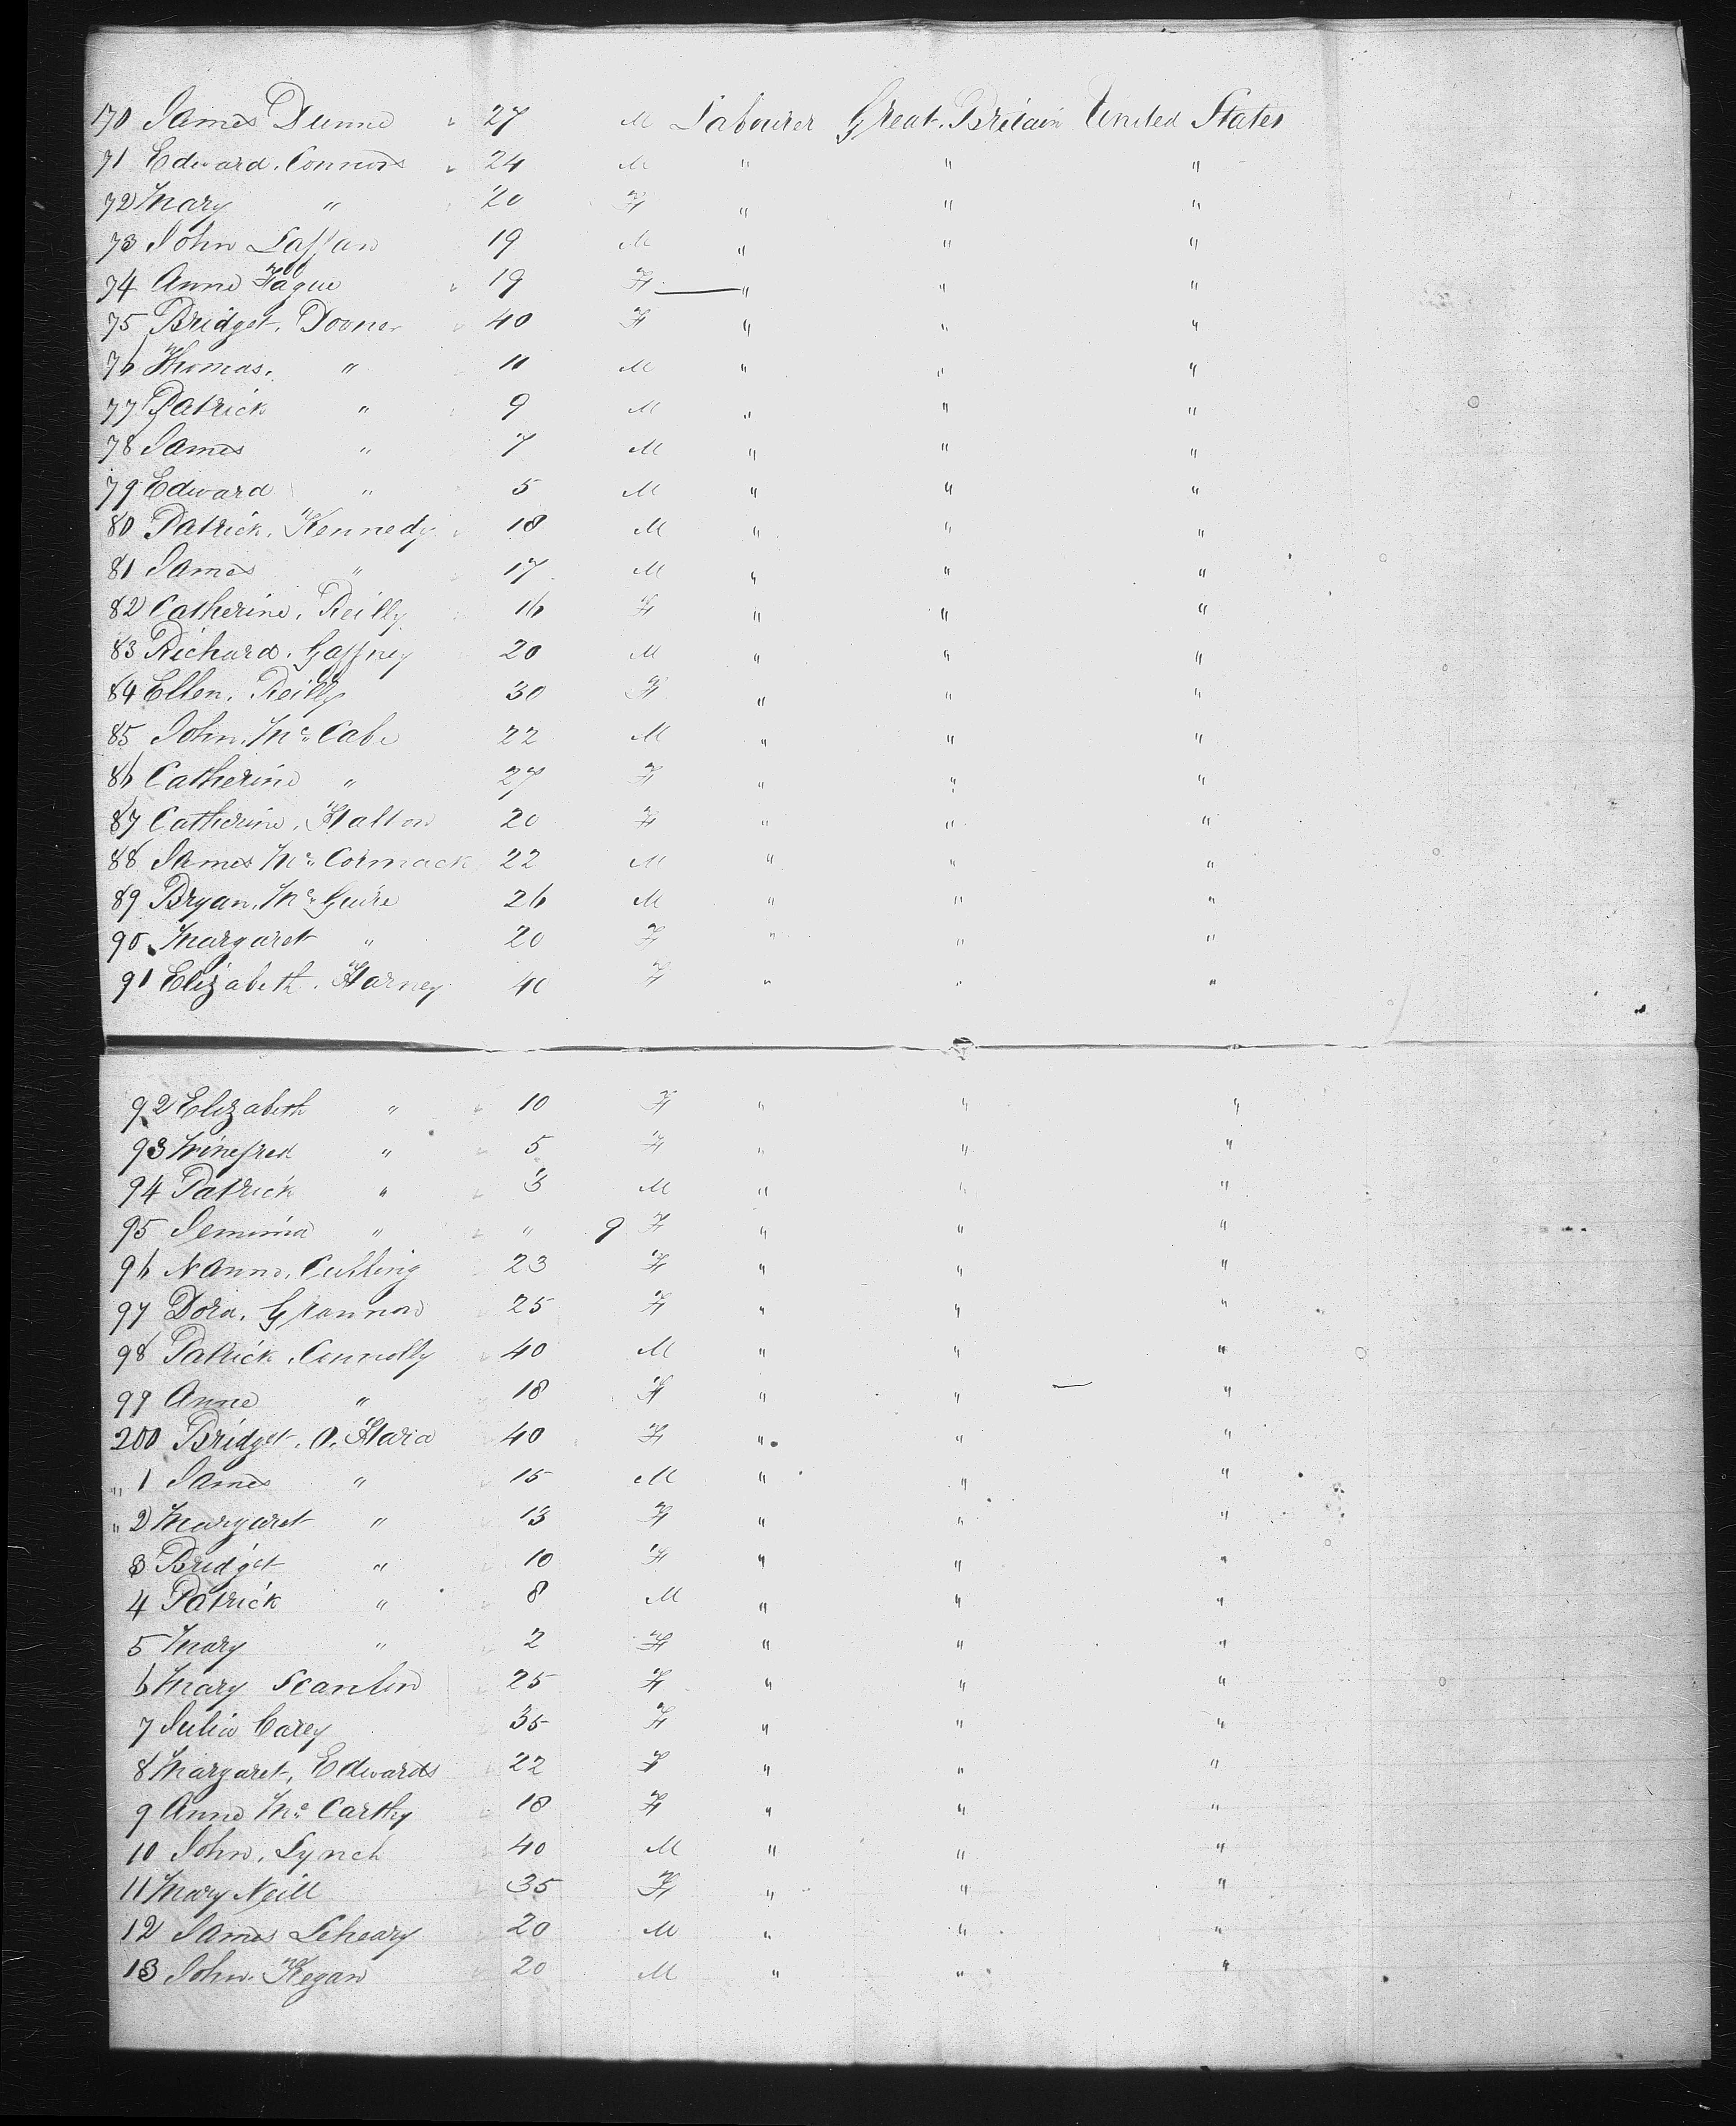 170 James Dunne " 27 M Labourer Great Britain United States
71 Edward Connors " 24 M " " "
72 Mary " 20 F " " "
73 John Laffan 19 M " " "
74 Anne Fague " 19 F " " "
75 Bridget Dooner 40 F " " "
76 Thomas " 11 M " " "
77 Patrick " 9 M " " "
78 James " 7 M " " "
79 Edward " 5 M " " "
80 Patrick Kennedy 18 M " " "
81 James " 17 M " " "
82 Catherine Reilly 16 F " " "
83 Richard Gaffney 20 M " " "
84 Ellen Reilly 30 F " " "
85 John Mc Cabe 22 M " " "
86 Catherine " 27 F " " "
87 Catherine Halton 20 F " " "
88 James Mc Cormack 22 M " " "
89 Bryan Mc Guire 26 M " " "
90 Margaret " 20 F " " "
91 Elizabeth Harney 40 F " " "
92 Elizabeth " 10 F " " "
93 Winefred " 5 F " " "
94 Patrick " 3 M " " "
95 Jemima " " 9 F " " "
96 N Anne 23 F " " "
97 Dora Grannon 25 F " " "
98 Patrick Connolly 40 M " " "
99 Anne " 18 F " " "
200 Bridget O. Hara 40 F " " "
" 1 James " 15 M " " "
" 2 Margaret " 13 F " " "
3 Bridget " 10 F " " "
4 Patrick " 8 M " " "
5 Mary " 2 F " " "
6 Mary Scanlin 25 F " " "
7 Julia Carey 35 F " " "
8 Margaret Edwards 22 F " " "
9 Anne Mc Carthy 18 F " " "
10 John Lynch 40 M " " "
11 Mary Neill 35 F " " "
12 James Leheary 20 M " " "
13 John Kegan 20 M " " "